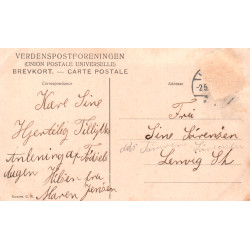 VERDENSPOSTFORENINGEN
(UNION POSTALE UNIVERSELLE)
BREVKORT. — CARTE POSTALE
Correspondance
Adresse
-2.5
Kære Sine
Hjertelig Tillykke
Anledning af Fødsels
dagen Hilsen fra
Maren Jensen
Fru
Sine Sørensen
Lemvig St.